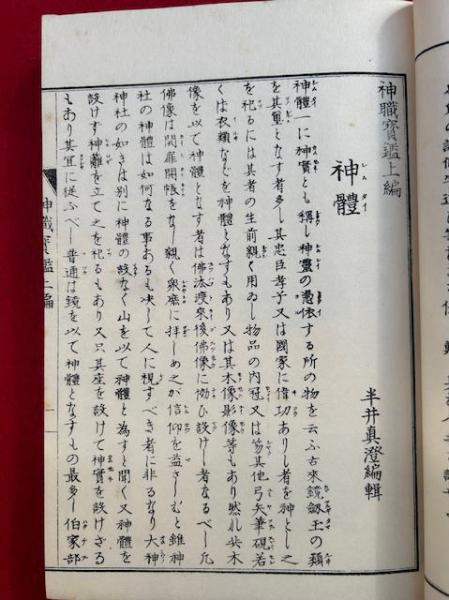 神職寳鑑上編
半井真澄編輯
神體
神體一に神實とも稱し神靈の憑依する所の物を云ふ古來鏡劔玉の類
を其璽となす者多し其忠臣孝子又は國家に偉功ありし者を神とし之
を祀るには其者の生前親く用ゐし物品の内冠又は笏其他弓矢筆硯若
くは衣類などを神體となすもあり又は其木像影像等もあり然れ共木
像を以て神體となす者は佛法渡來後佛像に傚ひ設けし者なるべし凡
佛像は開扉開帳をなし親く衆庶に拝しめ之が信仰を益さしむと雖神
社の神體は如何なる事あるも决して人に視すべき者に非るなり大神
神社の如きは別に神體の設なく山を以て神體と為すと聞く又神體を
設けず神籬を立て之を祀るもあり又只其座を設けて神實を設けざる
もあり其宜に從ふべし普通は鏡を以て神體となすもの最多し伯家部
神職寳鑑上編